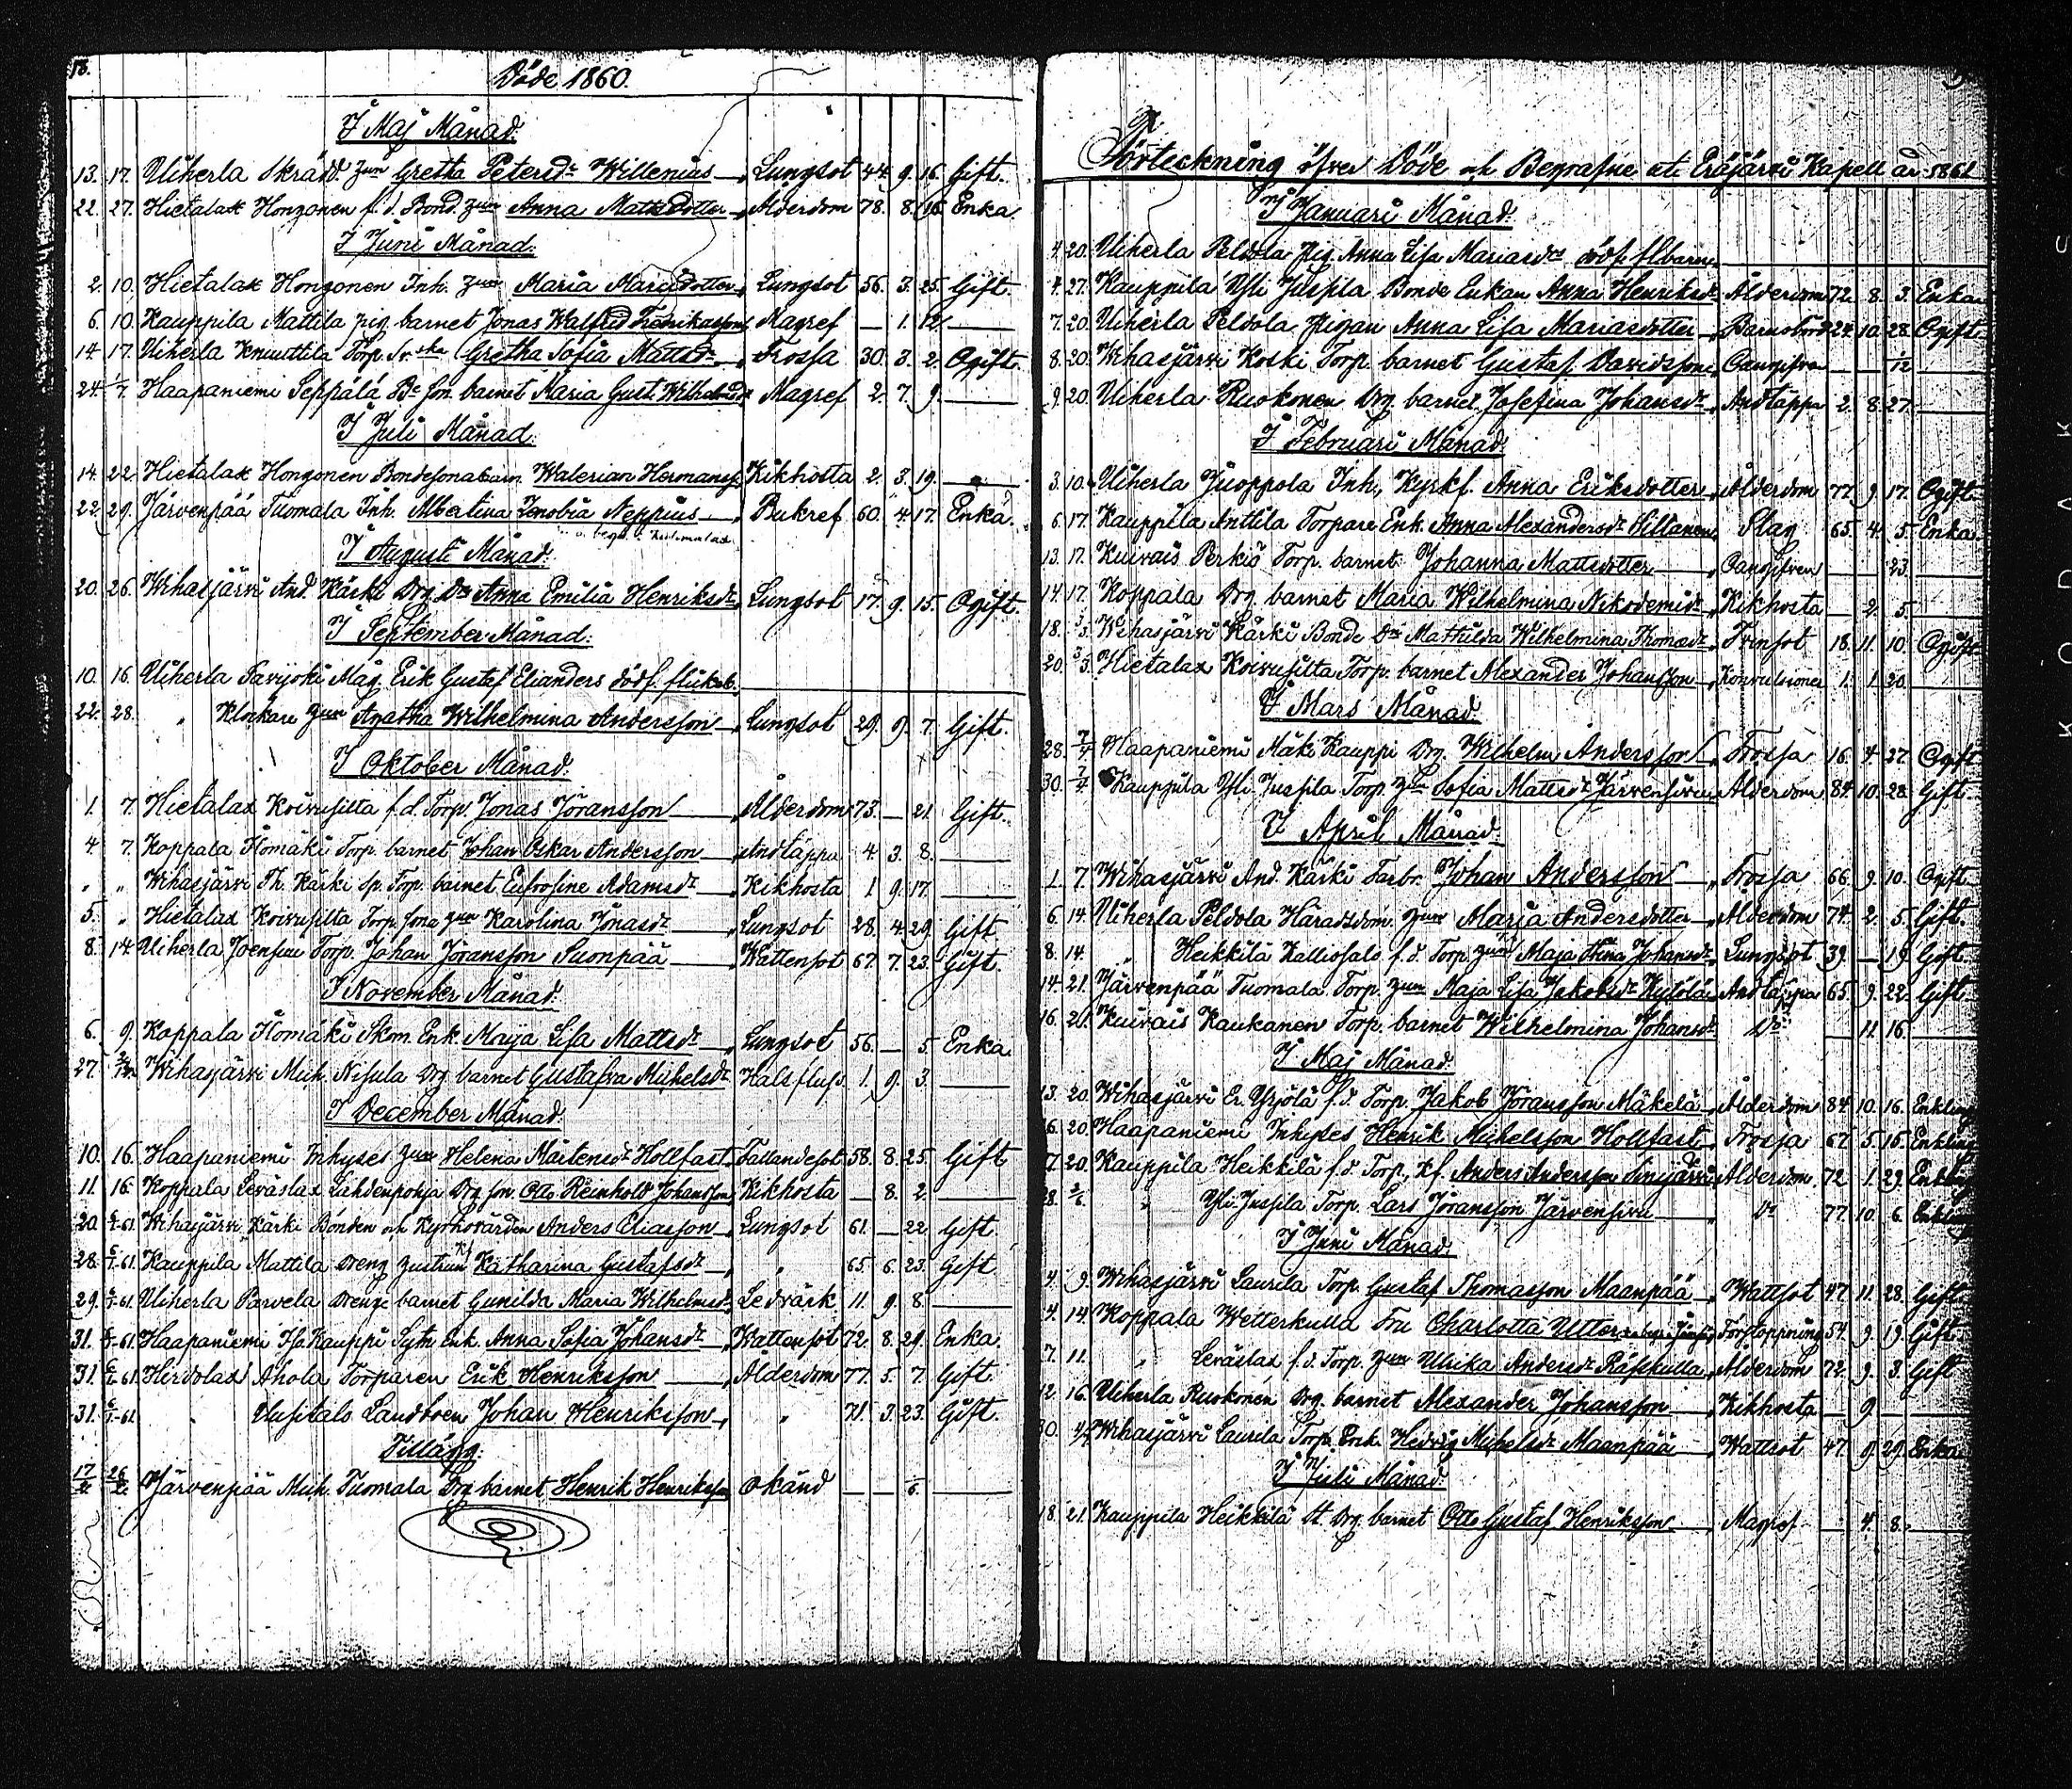 18.
Döde 1860.
I Maj Månad.
13. 17. Uiherla Skrädd. Gretha Petersdr Willenius Lungsot 44. 9. 16. Gift.
22. 27. Hietalax Honganen f.d. Bond. Anna Matsdotter Ålderdom 78. 8. 16. Enka.
I Juni Månad.
2. 10. Hietalax Hongonen Inh. Maria Mariædotter Lungsot 56. 3. 25. Gift.
6. 10. Kauppila Mattila pig. barnet Jonas Walfrid Fredriksson Magref — 1. 12. —
14. 17. Uiherla Knuuttila Torp. Gretha Sofia Mattsdr Frossa 30. 3. 2. Ogift.
24. 1/7. Haapaniemi Seppälä Be son. barnet Maria Gust. Wilhelmsdr Magref 2. 7. 9. —
I Juli Månad.
14. 22. Hietalax Hongonen Bondesonabarn Walerian Hermansson Kikhosta 2. 3. 19. —
22. 29. Järvenpää Tuomala Inh. Albertina Zenobia Neppius Bukref 60. 4. 17. Enka.
I Augusti Månad.
20. 26. Wihasjärvi And. Kärki Drg. Dr Anna Emilia Henriksdr Lungsot 17. 9. 15. Ogift.
I September Månad.
10. 16. Uiherla Savijoki Mag. Erik Gustaf Elianders dödf. flickeb.
22. 28. " Klockare Agatha Wilhelmina Andersson Lungsot 29. 9. 7. Gift.
I Oktober Månad.
1. 7. Hietalax Koivusilta f.d. Torp. Jonas Jöransson Ålderdom 73. — 21. Gift.
4. 7. Koppala Ilomäki Torp. barnet Johan Oskar Andersson Andtäppa 4. 3. 8. —
" " Wihasjärvi Th. Kärki sp. Torp. barnet Eufrosine Adamsdr Kikhosta 1. 9. 17. —
5. " Hietalax Koivusilta Torp. sons Karolina Jonasdr Lungsot 28. 4. 29. Gift
8. 14. Uiherla Joensuu Torp. Johan Jöransson Suonpää Wattensot 67. 7. 23. Gift.
I November Månad.
6. 9. Koppala Ilomäki Skom. Enk. Maija Lisa Mattsdr Lungsot 56. — 5. Enka
27. 2/12. Wihasjärvi Mich. Nisula Drg. barnet Gustafva Michelsdr Halsfluss 1. 9. 3. —
I December Månad.
10. 16. Haapaniemi Inhyses Helena Mårtensdr Hollfast Fallandesot 58. 8. 25. Gift
11. 16. Koppala Leväslax Lahdenpohja Drg. son. Otto Reinhold Johansson Kikhosta — 8. 2. —
20. 6/1-61. Wihasjärvi Kärki Bonden och Kyrkovärden Anders Eliasson Lungsot 61. — 22. Gift
28. 6/1-61. Kauppila Mattila Dreng hustrun Katharina Gustafsdr " 65. 6. 23. Gift
29. 6/1-61. Uiherla Parvela Drenge barnet Gunilda Maria Wilhelmsdr Ledvärk 11. 9. 8. —
31. 6/1-61. Haapaniemi Kauppi Sytn. Enk. Anna Sofia Johansdr Wattensot 72. 8. 29. Enka.
31. 6/1-61. Hirvolax Ahola Torparen Erik Henriksson Ålderdom 77. 5. 7. Gift.
31. 6/1-61. " Uusitalo Landboen Johan Henriksson " 71. 3. 23. Gift.
Tillägg.
17/2 26/2 Järvenpää Mich. Tuomala Drg barnet Henrik Henriksson Okänd — — 6. —
Förteckning öfver Döde och Begrafne uti Eräjärvi Kapell år 1861
I Januari Månad.
4. 20. Uiherla Peldola Pig. Anna Lisa Mariasdr dödf. barn
4. 27. Kauppila Yli Jussila Bonde Enkan Anna Henriksdr Ålderdom 72. 8. 3. Enka
7. 20. Uiherla Peldola Pigan Anna Lisa Mariasdotter Barnsbörd 24. 10. 28. Ogift.
8. 20. Wihasjärvi Koski Torp. barnet Gustaf Davidsson Oangifven — — 1/12 —
9. 20. Uiherla Ruokonen Drg. barnet Josefina Johansdr Andtäppa 2. 8. 27. —
I Februari Månad.
3. 10. Uiherla Juoppola Inh., Kyrkf. Anna Eriksdotter Ålderdom 77. 9. 17. Ogift.
6. 17. Kauppila Anttila Torpare Enk. Anna Alexandersdr Sillanen Slag 65. 4. 5. Enka
13. 17. Kuivais Perkiö Torp. barnet Johanna Mattsdotter Oangifven — — 23. —
14. 17. Koppala Drg barnet Maria Wilhelmina Nikodemidr Kikhosta — 2. 5. —
18. 3/3. Wihasjärvi Kärki Bonde Dr Mathilda Wilhelmina Thomasdr Tvinsot 18. 11. 10. Ogift
20. 3/3. Hietalax Koivusilta Torp. barnet Alexander Johansson Konvulsioner 1. 1. 20. —
I Mars Månad.
28. 7/4. Haapaniemi Mäki Kauppi Drg. Wilhelm Andersson Frossa 16. 4. 27. Ogift
30. 7/4. Kauppila Yli Jussila Torp. Sofia Mattsdr Järvensivu Ålderdom 84. 10. 28. Gift.
I April Månad.
1. 7. Wihasjärvi And. Kärki Farbr. Johan Andersson Frossa 66. 9. 10. Ogift.
6. 14. Uiherla Peldola Häradsdom. Maria Andersdotter Ålderdom 74. 2. 5. Gift.
8. 14. " Heikkilä Kalliosalo f.d. Torp. Maja Stina Johansdr Lungsot 39. — 19. Gift.
14. 21. Järvenpää Tuomala Torp. Maja Lisa Jakobsdr Kytölä Andtäppa 65. 9. 22. Gift
16. 21. Kuivais Kaukanen Torp. barnet Wilhelmina Johansdr Do — 11. 16. —
I Maj Månad.
13. 20. Wihasjärvi Er. Yrjölä f.d. Torp. Jakob Jöransson Mäkelä Ålderdom 84. 10. 16. Enkling
16. 20. Haapaniemi Inhyses Henrik Michelsson Hollfast Frossa 67. 5. 15. Enkling
17. 20. Kauppila Heikkilä f.d. Torp., kf. Anders Andersson Sinijärvi Ålderdom 72. 1. 29. Enkling
28. 2/6. " Yli-Jussila Torp. Lars Jöransson Järvensivu Do 77. 10. 6. Enkling
I Juni Månad.
4. 9. Wihasjärvi Laurila Torp. Gustaf Thomasson Maanpää Wattsot 47. 11. 28. Gift
4. 14. Koppala Wetterkulla Fru Charlotta Utter Förstoppning 54. 9. 19. Gift
7. 11. " Leväslax f.d. Torp. Ulrika Andersdr Räfskulla Ålderdom 72. 9. 3. Gift
12. 16. Uiherla Ruokonen Drg. barnet Alexander Johansson Kikhosta — 9. — —
30. 4/7. Wihasjärvi Laurila Torp. Enk. Hedvig Michelsdr Maanpää Wattsot 47. 9. 29. Enka
I Juli Månad.
18. 21. Kauppila Heikkilä Drg. barnet Otto Gustaf Henriksson Magref. — 4. 8. —
KODAK S